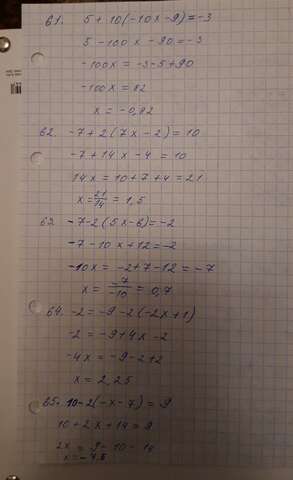 61. 5 + 10(-10x - 9) = -3
5 - 100x - 90 = -3
-100x = -3 - 5 + 90
-100x = 82
x = -0,82
62. -7 + 2(7x - 2) = 10
-7 + 14x - 4 = 10
14x = 10 + 7 + 4 = 21
x = 21/14 = 1,5
63 -7 - 2(5x - 6) = -2
-7 - 10x + 12 = -2
-10x = -2 + 7 - 12 = -7
x = -7/-10 = 0,7
64. -2 = -9 - 2(-2x + 1)
-2 = -9 + 4x - 2
-4x = -9 - 2 + 2
x = 2,25
65. 10 - 2(-x - 7) = 9
10 + 2x + 14 = 9
2x = 9 - 10 - 14
x = -7,5